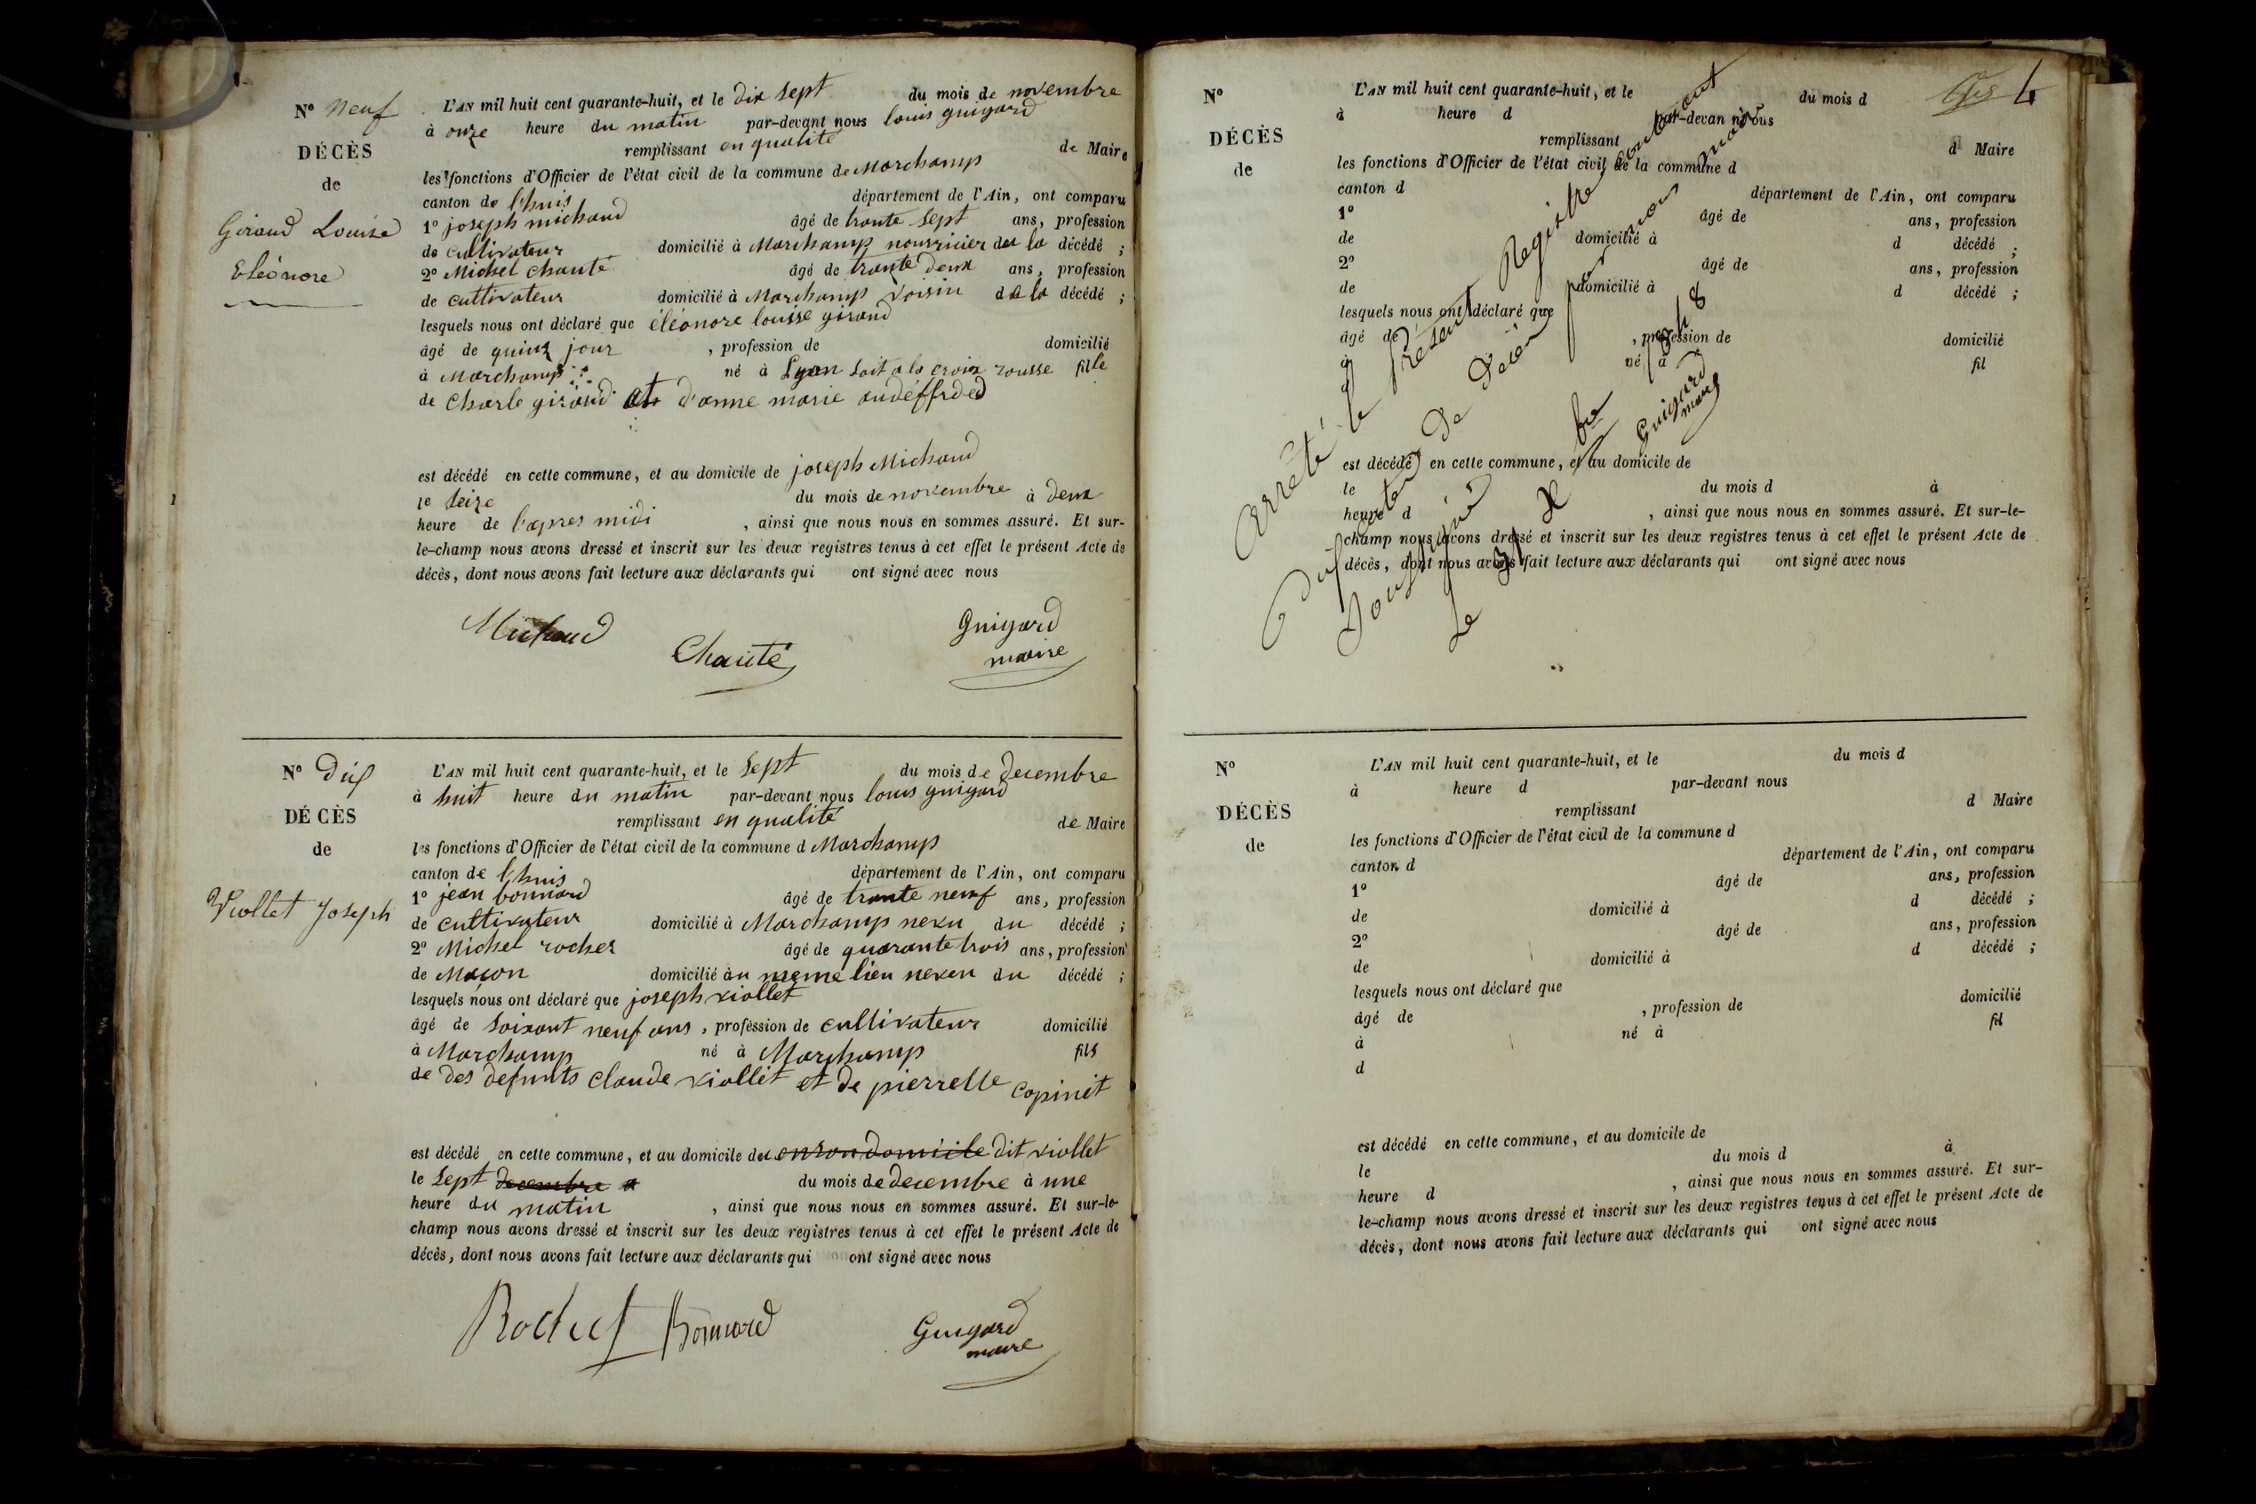 N° neuf
DÉCÈS
de
Giraud Louise
Eléonore
L'AN mil huit cent quarante-huit, et le dix sept du mois de novembre
à onze heure du matin par-devant nous louis guigard
remplissant en qualité de Maire
les fonctions d'Officier de l'état civil de la commune de Marchamp
canton de l'huis département de l'Ain, ont comparu
1° joseph michaud âgé de trante sept ans, profession
de cultivateur domicilié à Marchamp nourricier de la décédé ;
2° Michel chanté âgé de trante deux ans, profession
de cultivateur domicilié à Marchamp voisin de la décédé ;
lesquels nous ont déclaré que éléonore louise giraud
âgé de quinz jour , profession de domicilié
à Marchamp né à Lyon soit a la croix rousse fille
de Charle giraud et d'anne marie
est décédé en cette commune, et au domicile de joseph Michaud
le seize du mois de novembre à deux
heure de l'apres midi , ainsi que nous nous en sommes assuré. Et sur-
le-champ nous avons dressé et inscrit sur les deux registres tenus à cet effet le présent Acte de
décès, dont nous avons fait lecture aux déclarants qui ont signé avec nous
Michaud Chanté Guigard
maire
N° dix
DÉCÈS
de
Viollet Joseph
L'AN mil huit cent quarante-huit, et le sept du mois de decembre
à huit heure du matin par-devant nous louis guigard
remplissant en qualité de Maire
les fonctions d'Officier de l'état civil de la commune d Marchamp
canton de l'huis département de l'Ain, ont comparu
1° jean bonnard âgé de trante neuf ans, profession
de cultivateur domicilié à Marchamp neveu du décédé ;
2° Michel rochet âgé de quarante trois ans, profession
de Maçon domicilié au meme lieu neveu du décédé ;
lesquels nous ont déclaré que joseph viollet
âgé de soixant neuf ans , profession de cultivateur domicilié
à Marchamp né à Marchamp fils
de des defunts claude viollet et de pierrette copinet
est décédé en cette commune, et au domicile du en son domicile dit viollet
le sept decembre a du mois de decembre à une
heure du matin , ainsi que nous nous en sommes assuré. Et sur-le-
champ nous avons dressé et inscrit sur les deux registres tenus à cet effet le présent Acte de
décès, dont nous avons fait lecture aux déclarants qui ont signé avec nous
Rochet Bonnard Guigard
maire
4
N°
DÉCÈS
de
L'AN mil huit cent quarante-huit, et le du mois d
à heure d par-devan nous
remplissant d Maire
les fonctions d'Officier de l'état civil de la commune d
canton d département de l'Ain, ont comparu
1° âgé de ans, profession
de domicilié à d décédé ;
2° âgé de ans, profession
de domicilié à d décédé ;
lesquels nous ont déclaré que
âgé de , profession de domicilié
à né à fil
d
est décédé en cette commune, et au domicile de
le du mois d à
heure d , ainsi que nous nous en sommes assuré. Et sur-le-
champ nous avons dressé et inscrit sur les deux registres tenus à cet effet le présent Acte de
décès, dont nous avons fait lecture aux déclarants qui ont signé avec nous
Arrêté le présent Registre contenant
dix actes de décès par nous maire
soussigné
le 31 Xbre 1848
Guigard
maire
N°
DÉCÈS
de
L'AN mil huit cent quarante-huit, et le du mois d
à heure d par-devant nous
remplissant d Maire
les fonctions d'Officier de l'état civil de la commune d
canton d département de l'Ain, ont comparu
1° âgé de ans, profession
de domicilié à d décédé ;
2° âgé de ans, profession
de domicilié à d décédé ;
lesquels nous ont déclaré que
âgé de , profession de domicilié
à né à fil
d
est décédé en cette commune, et au domicile de
le du mois d à
heure d , ainsi que nous nous en sommes assuré. Et sur-
le-champ nous avons dressé et inscrit sur les deux registres tenus à cet effet le présent Acte de
décès, dont nous avons fait lecture aux déclarants qui ont signé avec nous